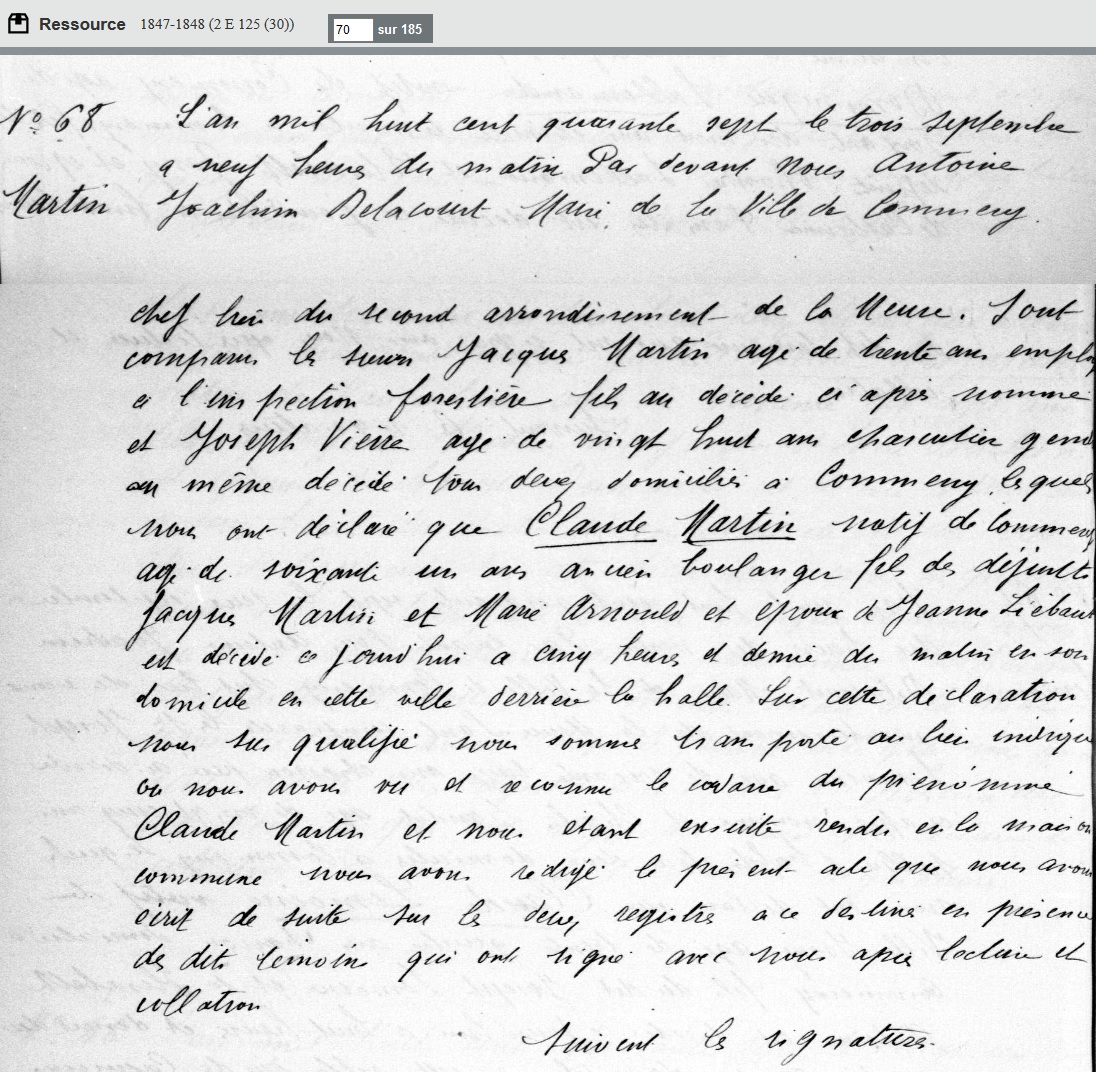 Ressource 1847-1848 (2 E 125 (30)) 70 sur 185
N° 68 L'an mil huit cent quarante sept le trois septembre
a neuf heures du matin Par devant nous Antoine
Martin Joachim Delacourt Maire de la Ville de Commercy
chef lieu du second arrondissement de la Meuse. Sont
comparus les sieurs Jacques Martin age de trente ans employ
a l'inspection forestière fils au décédé ci après nommé
et Joseph Vierre age de vingt huit ans charcutier gend
au même décédé tous deux domiciliés à Commercy lesquels
nous ont déclaré que Claude Martin natif de Commercy
agé de soixante un ans ancien boulanger fils des défunts
Jacques Martin et Marie Arnould et époux de Jeanne Liébaut
est décédé ce jourd'hui a cinq heures et demie du matin en son
domicile en cette ville derrière la halle. Sur cette déclaration
nous sus qualifié nous sommes transporté au lieu indiqué
ou nous avons vu et reconnu le cadavre du prénommé
Claude Martin et nous étant ensuite rendu en la maison
commune nous avons rédigé le présent acte que nous avons
écrit de suite sur les deux registres a ce destinés en présence
des dits témoins qui ont signé avec nous après lecture et
collation
Suivent les signatures.